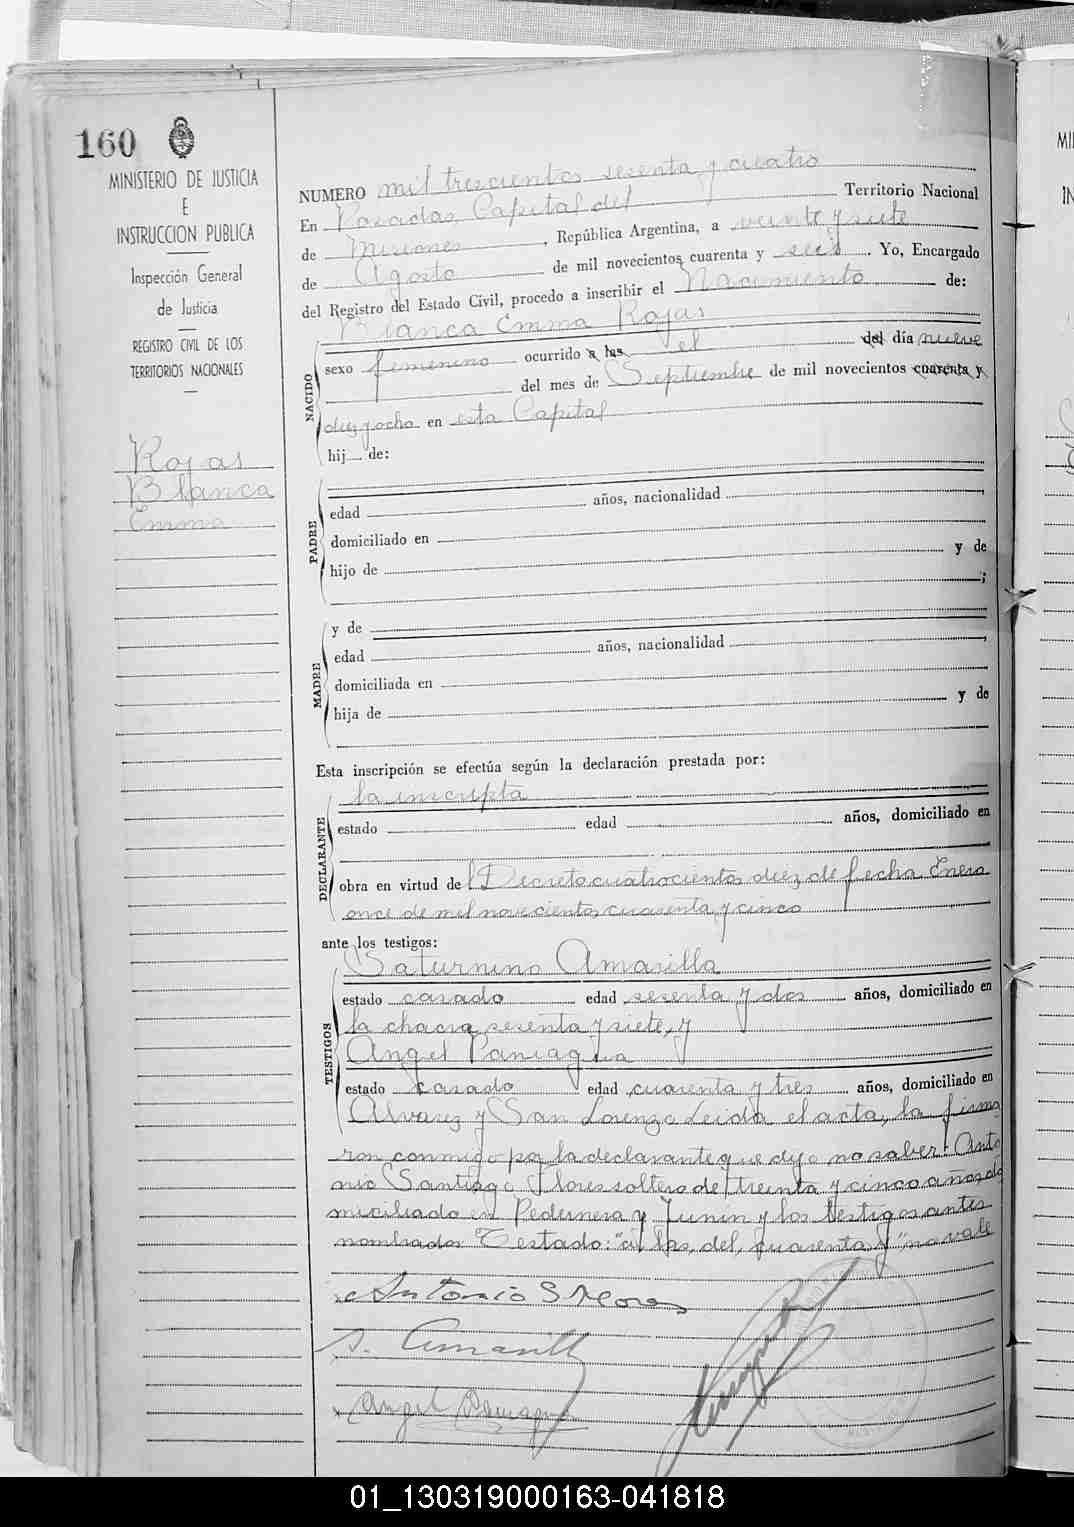 160
MINISTERIO DE JUSTICIA
E
INSTRUCCION PUBLICA
Inspección General
de Justicia
REGISTRO CIVIL DE LOS
TERRITORIOS NACIONALES
Rojas
Blanca
Emma
NUMERO mil trescientos sesenta y cuatro
En Posadas, Capital del Territorio Nacional
de Misiones, República Argentina, a veinte y siete
de Agosto de mil novecientos cuarenta y seis. Yo, Encargado
del Registro del Estado Civil, procedo a inscribir el Nacimiento de:
NACIDO
Blanca Emma Rojas
sexo femenino ocurrido a las el del día nueve
del mes de Septiembre de mil novecientos cuarenta y
diez y ocho en esta Capital
hij de:
PADRE
edad años, nacionalidad
domiciliado en
hijo de y de
;
MADRE
y de
edad años, nacionalidad
domiciliada en
hija de y de
Esta inscripción se efectúa según la declaración prestada por:
DECLARANTE
la inscripta
estado edad años, domiciliado en
obra en virtud de Decreto cuatrocientos diez de fecha Enero
once de mil novecientos cuarenta y cinco
ante los testigos:
TESTIGOS
Saturnino Amarilla
estado casado edad sesenta y dos años, domiciliado en
la chacra sesenta y siete, y
Angel Paniagua
estado casado edad cuarenta y tres años, domiciliado en
Alvarez y San Lorenzo Leida el acta, la firma
ron conmigo por la declarante que dijo no saber Anto
nio Santiago Flores soltero de treinta y cinco años do
miciliado en Pedernera y Junin y los testigos antes
nombrados Testado: "a las, del, cuarenta y" no vale
Antonio S Flores
S. Amarill
Angel Paniagua
01_130319000163-041818